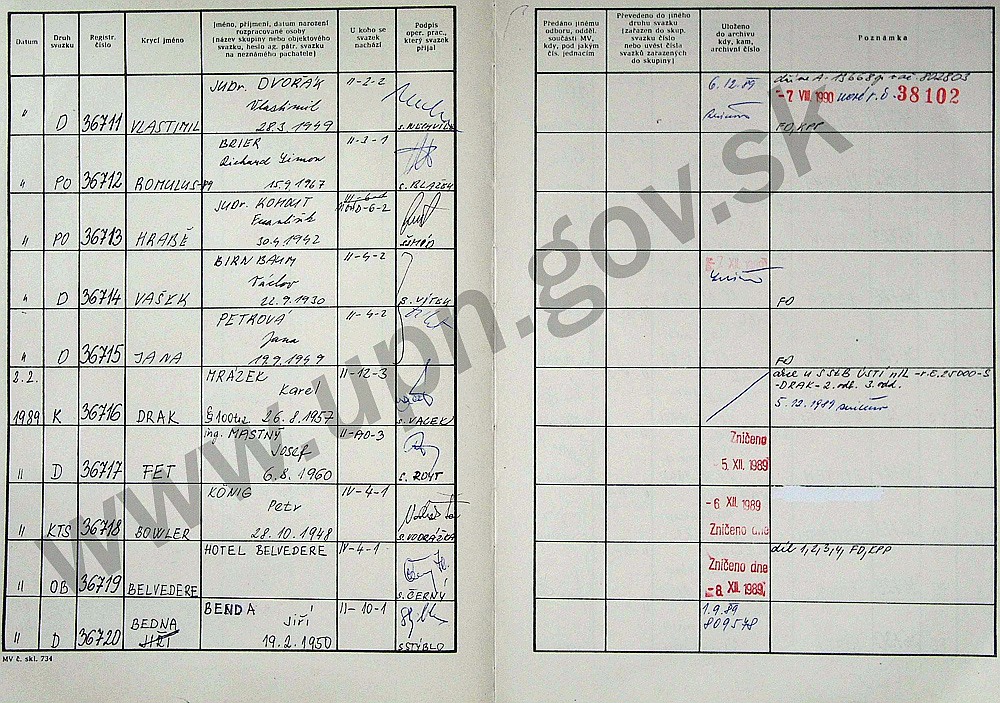 Datum
Druh
svazku
Registr.
číslo
Krycí jméno
Jméno, příjmení, datum narození
rozpracované osoby
(název skupiny nebo objektového
svazku, heslo ag. pátr. svazku
na neznámého pachatele)
U koho se
svazek
nachází
Podpis
oper. prac.,
který svazek
přijal
Předáno jinému
odboru, odděl.
součásti MV,
kdy, pod jakým
čís. jednacím
Převedeno do jiného
druhu svazku
(zařazen do skup.
svazku číslo
nebo uvést čísla
svazků zařazených
do skupiny)
Uloženo
do archivu
kdy, kam,
archivní číslo
Poznámka
" D 36711 VLASTIMIL
JUDr. DVOŘÁK
Vlastimil
28.3. 1949
II-2-2
6.12.89
-7 VIII. 1990 nové r.č. 38102
FO, KPP
" PO 36712 ROMULUS-89
BRIER
Richard Simon
15.9. 1967
II-3-1
" PO 36713 HRABĚ
JUDr. KOHOUT
František
30.4. 1942
D-6-2
" D 36714 VAŠEK
BIRNBAUM
Václav
22.9. 1930
II-4-2
S. VÍTEK
-7. XII. 1989
FO
" D 36715 JANA
PETROVÁ
Jana
19.9. 1949
II-4-2
FO
8.2.
1989 K 36716 DRAK
MRÁZEK
Karel
26.8. 1957
II-12-3
S. VALEK
akce u S SNB ÚSTÍ n/L -r.č. 25000-S
-DRAK- 2. odb. 3. odd.
5.12.1989
" D 36717 FET
ing. MASTNÝ
Josef
6.8. 1960
II-AO-3
Zničeno
-5. XII. 1989
" KTS 36718 BOWLER
KÖNIG
Petr
28.10. 1948
IV-4-1
S. VODRÁŽKA
-6 XII. 1989
Zničeno dne
" OB 36719 BELVEDERE
HOTEL BELVEDERE
IV-4-1
S. ČERNÝ
Zničeno dne
-8. XII. 1989
díl 1,2,3,4, FO, KPP
" D 36720 BEDNA
JIŘÍ
BENDA
Jiří
19.2. 1950
II-10-1
S STÝBLO
1.9.89
809578
MV č. skl. 734
www.upn.gov.sk